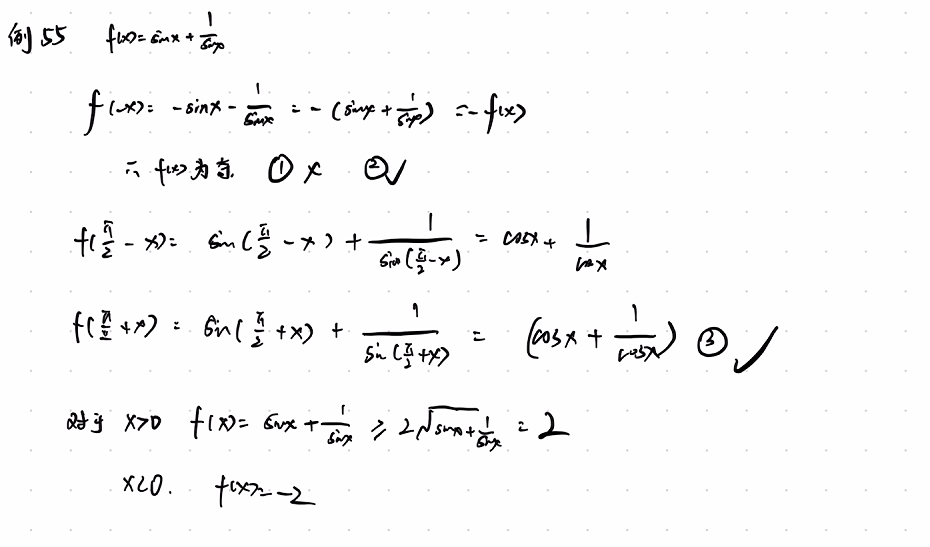 例55 f(x)=sinx+1/sinx
f(-x)= -sinx-1/sinx = -(sinx+1/sinx) =-f(x)
∴ f(x)为奇. ① × ② ✓
f(π/2-x)= sin(π/2-x)+1/sin(π/2-x) = cosx+1/cosx
f(π/2+x) = sin(π/2+x)+1/sin(π/2+x) = (cosx+1/cosx) ③ ✓
对于 x>0 f(x)= sinx+1/sinx ≥ 2√sinx+1/sinx = 2
x<0. f(x)=-2